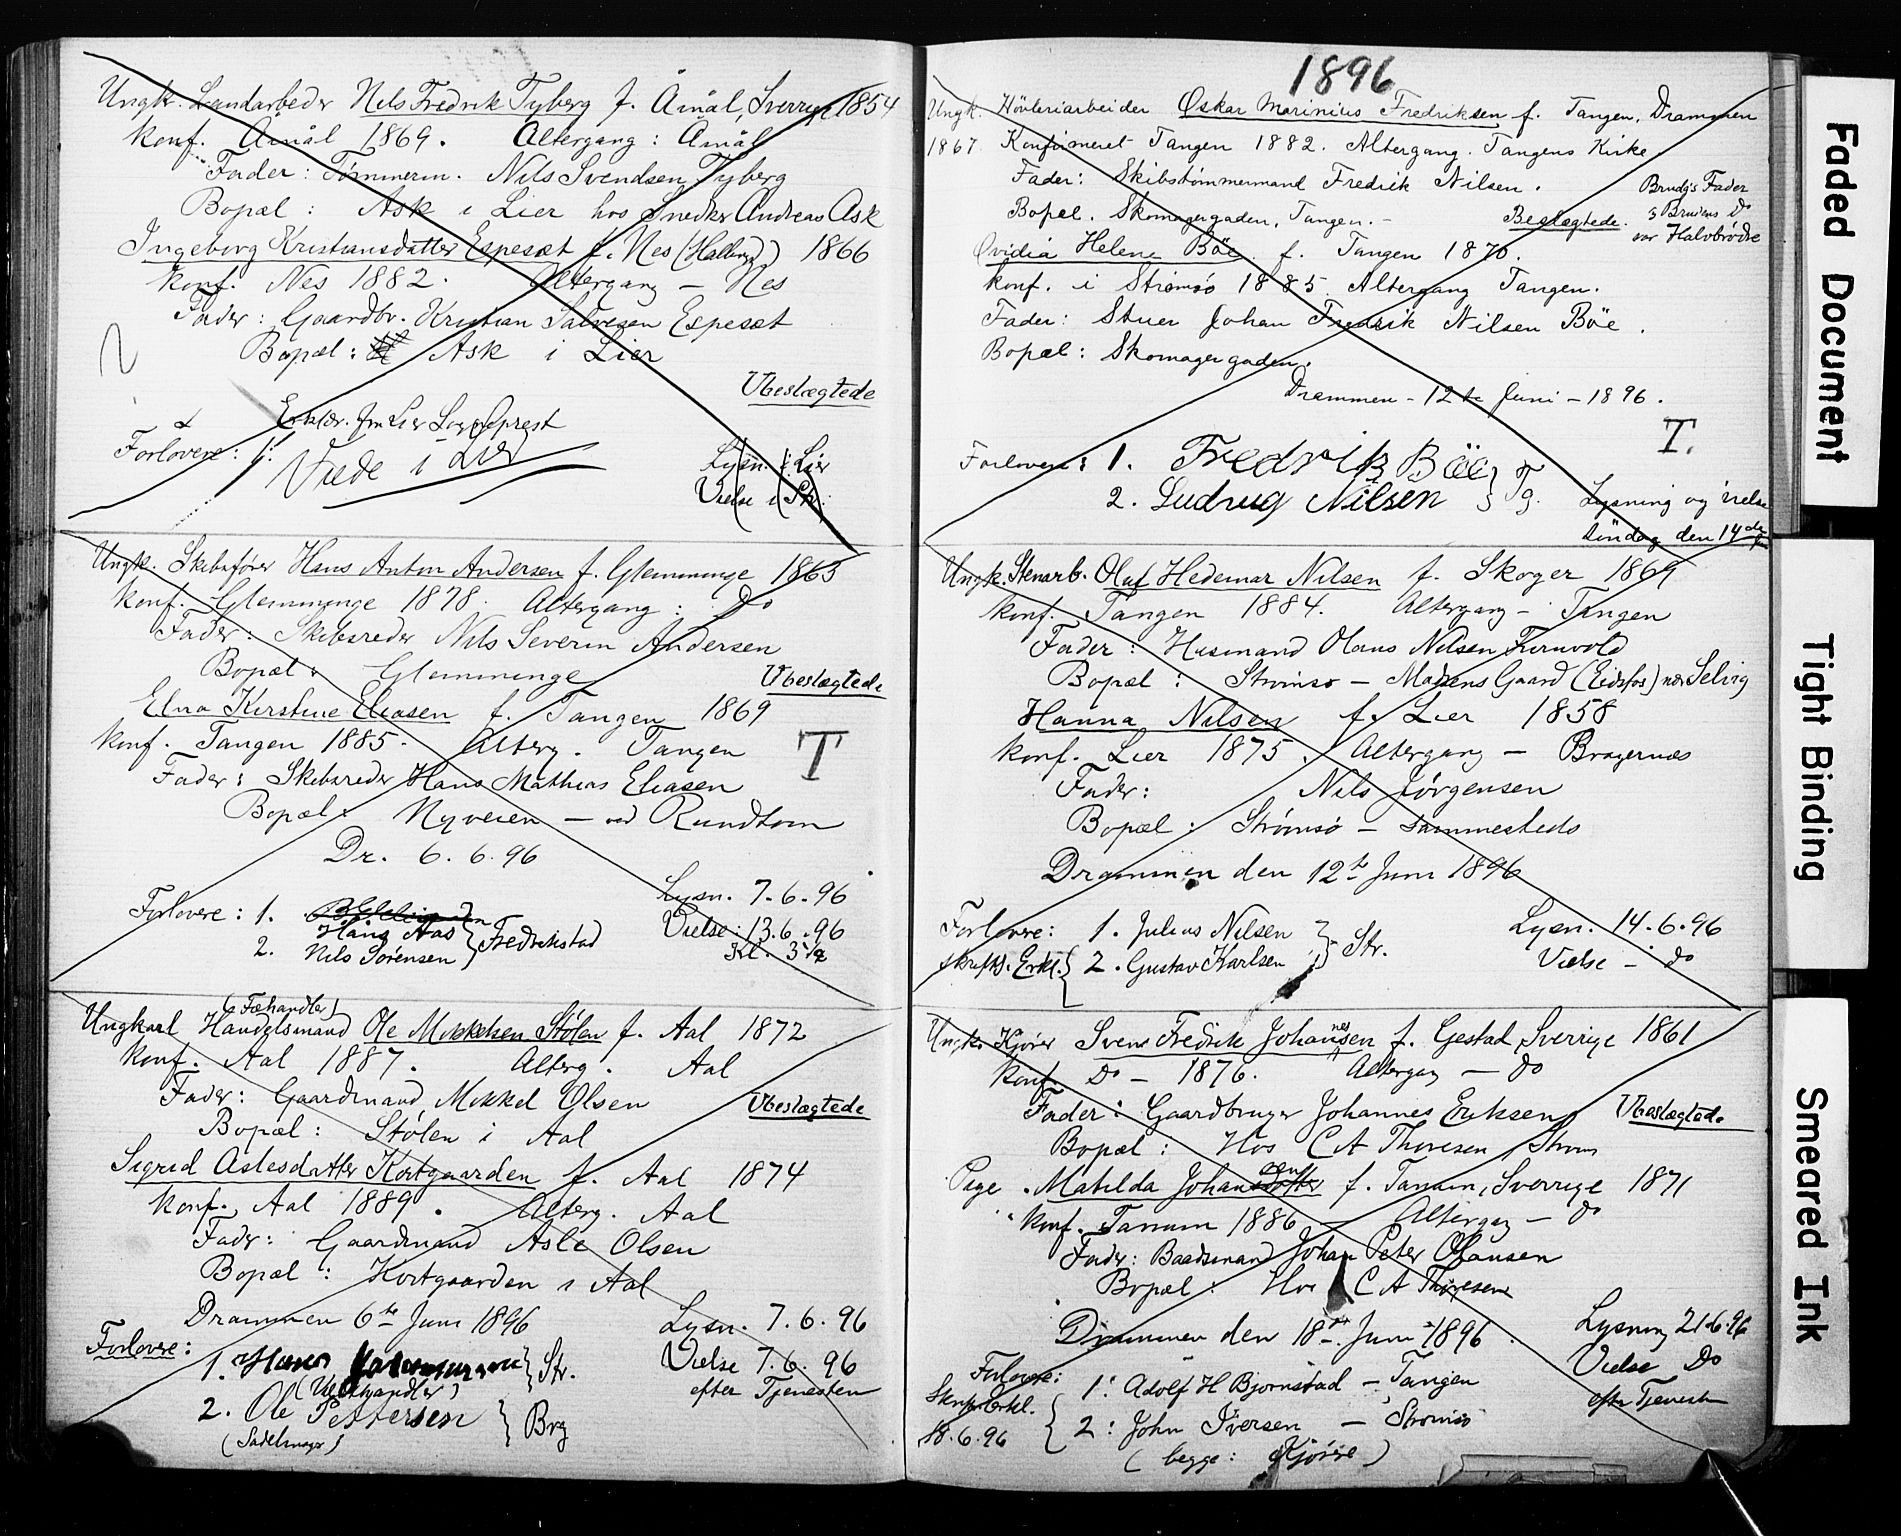 Ungk. Landarbeder Nils Fredrik Tyberg f. Åmål, Sverrige 1854
konf. Åmål 1869. Altergang: Åmål
Fader: Tømmerm. Nils Svendsen Tyberg
Bopæl: Ask i Lier hos Snedker Andreas Ask
Ingeborg Kristiansdatter Espesæt f. Nes (Hallingd) 1866
konf. Nes 1882. Altergang – Nes
Fader: Gaardbr. Kristian Salvesen Espesæt
Bopæl: Ask i Lier
Ubeslægtede
Erklær. fra Lier Sogneprest
Forlovere: 1.
Viede i Lier
Lysn. i Lier
Vielse i Str.
Ungk. Skibsfører Hans Anton Andersen f. Glemminge 1863
konf. Glemminge 1878. Altergang: Do
Fader: Skibsreder Nils Severin Andersen
Bopæl: Glemminge
Ubeslægtede
Elna Kirstine Eliasen f. Tangen 1869
konf. Tangen 1885. Alterg. Tangen
T
Fader: Skibsreder Hans Mathias Eliasen
Bopæl: Nyveien – ved Rundtom
Dr. 6.6.96
Lysn. 7.6.96
Forlovere: 1.
Hans Aas
2. Nils Sørensen } Fredrikstad
Vielse: 13.6.96
Kl. 3½
(Fæhandler)
Ungkarl Handelsmand Ole Mikkelsen Stølen f. Aal 1872
konf. Aal 1887. Alterg. Aal
Fader: Gaardmand Mikkel Olsen
Ubeslægtede
Bopæl: Stølen i Aal
Sigrid Aslesdatter Kortgaarden f. Aal 1874
konf. Aal 1889. Alterg. Aal
Fader: Gaardmand Asle Olsen
Bopæl: Kortgaarden i Aal
Drammen 6te Juni 1896
Lysn. 7.6.96
Forlovere:
1. Hans } Str.
Vielse 7.6.96
efter Tjenesten
2. Ole Pettersen } Brg
(Sadelmager)
1896
Ungk. Høvleriarbeider Oskar Marinius Fredriksen f. Tangen, Drammen
1867. Konfirmeret Tangen 1882. Altergang. Tangens Kirke
Fader: Skibstømmermand Fredrik Nilsen.
Bopæl. Skomagergaden, Tangen. –
Beslægtede.
Brudg's Fader
& Brudens Do
var Halvbrødre
Ovidia Helene Böe. f. Tangen 1870.
konf. i Strømsö 1885 Altergang Tangen.
Fader: Stuer Johan Fredrik Nilsen Böe.
Bopæl: Skomagergaden.
Drammen – 12te Juni – 1896.
T.
Forlovere: 1. Fredrik Böe } Tg.
2. Ludvig Nilsen
Lysning og Vielse
Søndag den 14de
Ungk. Stenarb. Olaf Hedemar Nilsen f. Skoger 1869
konf. Tangen 1884. Altergang – Tangen
Fader: Husmand Olaus Nilsen Furuvold
Bopæl: Strømsø – Madsens Gaard (Eidsfos) nær Selvig
Hanna Nilsen f. Lier 1858
konf. Lier 1875. Altergang – Bragernæs
Fader: Nils Jørgensen
Bopæl: Strømsø – sammesteds
Drammen den 12te Juni 1896
Forlovere: 1. Julius Nilsen } Str.
skriftl. Erkl. { 2. Gustav Karlsen
Lysn. 14.6.96
Vielse – do
Ungk. Kjører Sven Fredrik Johannesen f. Gestad, Sverrige 1861
konf. Do – 1876. Altergang – do
Fader: Gaardbruger Johannes Eriksen
Ubeslægtede
Bopæl: Hos C A Thoresen, Strøms
Pige. Matilda Johansen f. Tanum, Sverrige 1871
konf. Tanum 1886 Altergang – Do
Fader: Baadsmand Johan Peter Johansen
Bopæl: Hos C A Thoresen
Drammen den 18de Juni 1896.
Lysning 21.6.96
Vielse Do
efter Tjenesten
Forlovere:
Skriftl. Erkl.
18.6.96
1: Adolf H Bjørnstad – Tangen
2: John Iversen – Strømsø
(begge: Kjører)
Faded Document
Tight Binding
Smeared Ink